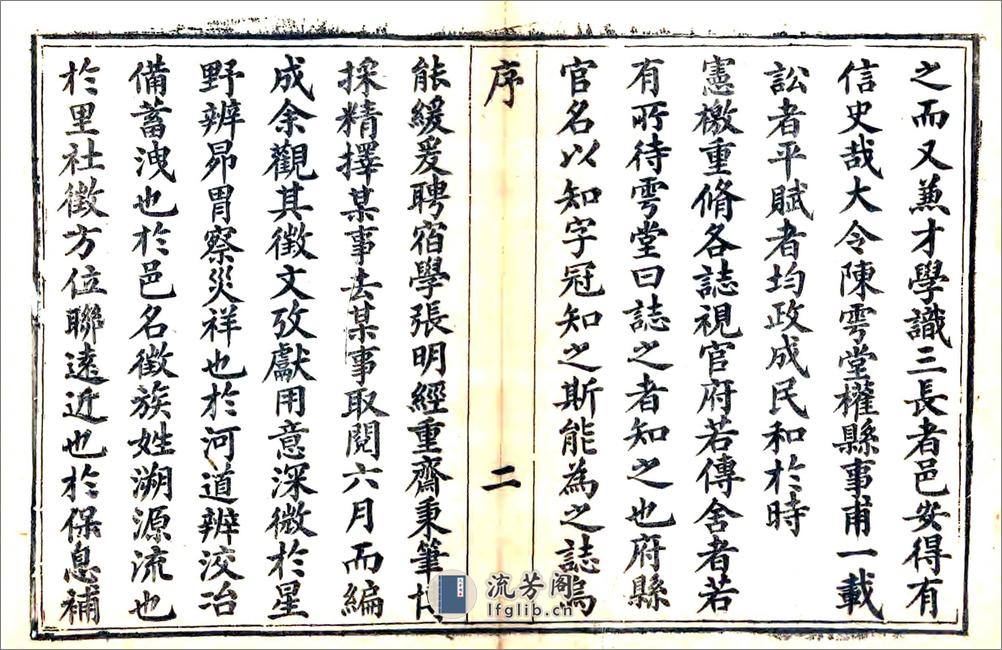 之而又兼才學識三長者邑安得有
信史哉大令陳雩堂權縣事甫一載
訟者平賦者均政成民和於時
憲檄重脩各誌視官府若傳舍者若
有所待雩堂曰誌之者知之也府縣
官名以知字冠知之斯能為之誌烏
序 二
能緩爰聘宿學張明經重齋秉筆
採精擇某事去某事取閱六月而編
成余觀其徵文攷獻用意深微於星
野辨昴胃察災祥也於河道辨浹冶
備蓄洩也於邑名徵族姓溯源流也
於里社徵方位聯遠近也於保息補
流芳阁
lfglib.cn